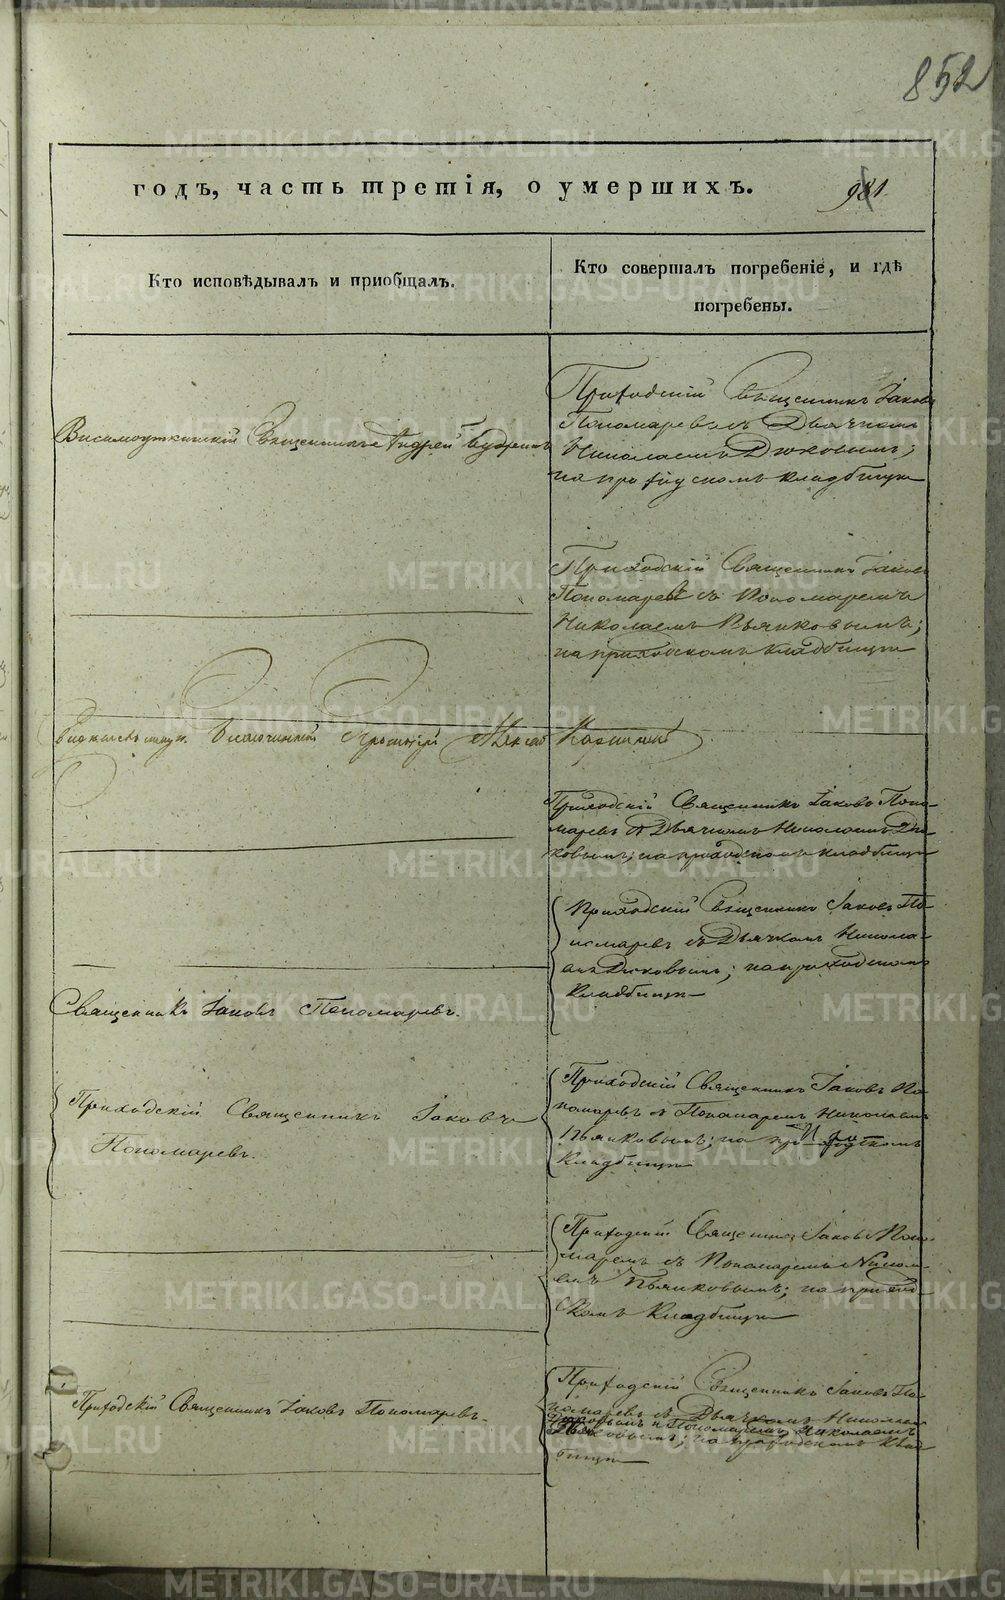 852
годъ, часть третія, о умершихъ.
981
Кто исповѣдывалъ и приобщалъ.
Кто совершалъ погребеніе, и гдѣ
погребены.
Висимоуткинскій Священникъ Андрей
Приходскій Священникъ Іаковъ
Пономаревъ съ Дьячкомъ
Николаемъ Дюковымъ;
на приходскомъ кладбищѣ
Приходскій Священникъ Іаковъ
Пономаревъ съ Пономаремъ
Николаемъ Пьянковымъ;
на приходскомъ кладбищѣ
Благочинный Протоіерей
Приходскій Священникъ Іаковъ Поно-
маревъ съ Дьячкомъ Николаемъ Дю-
ковымъ; на приходскомъ кладбищѣ
Приходскій Священникъ Іаковъ По-
номаревъ съ Дьячкомъ Никола-
емъ Дюковымъ; на приходскомъ
кладбищѣ
Священникъ Іаковъ Пономаревъ.
Приходскій Священникъ Іаковъ
Пономаревъ.
Приходскій Священникъ Іаковъ По-
номаревъ съ Пономаремъ Николаемъ
Пьянковымъ; на приходскомъ
кладбищѣ
Приходскій Священникъ Іаковъ Поно-
маревъ съ Пономаремъ Никола-
емъ Пьянковымъ; на приход-
скомъ кладбищѣ
Приходскій Священникъ Іаковъ Пономаревъ.
Приходскій Священникъ Іаковъ По-
номаревъ съ Дьячкомъ Николаемъ
Дюковымъ и Пономаремъ Николаемъ
Пьянковымъ; на приходскомъ клад-
бищѣ
METRIKI.GASO-URAL.RU